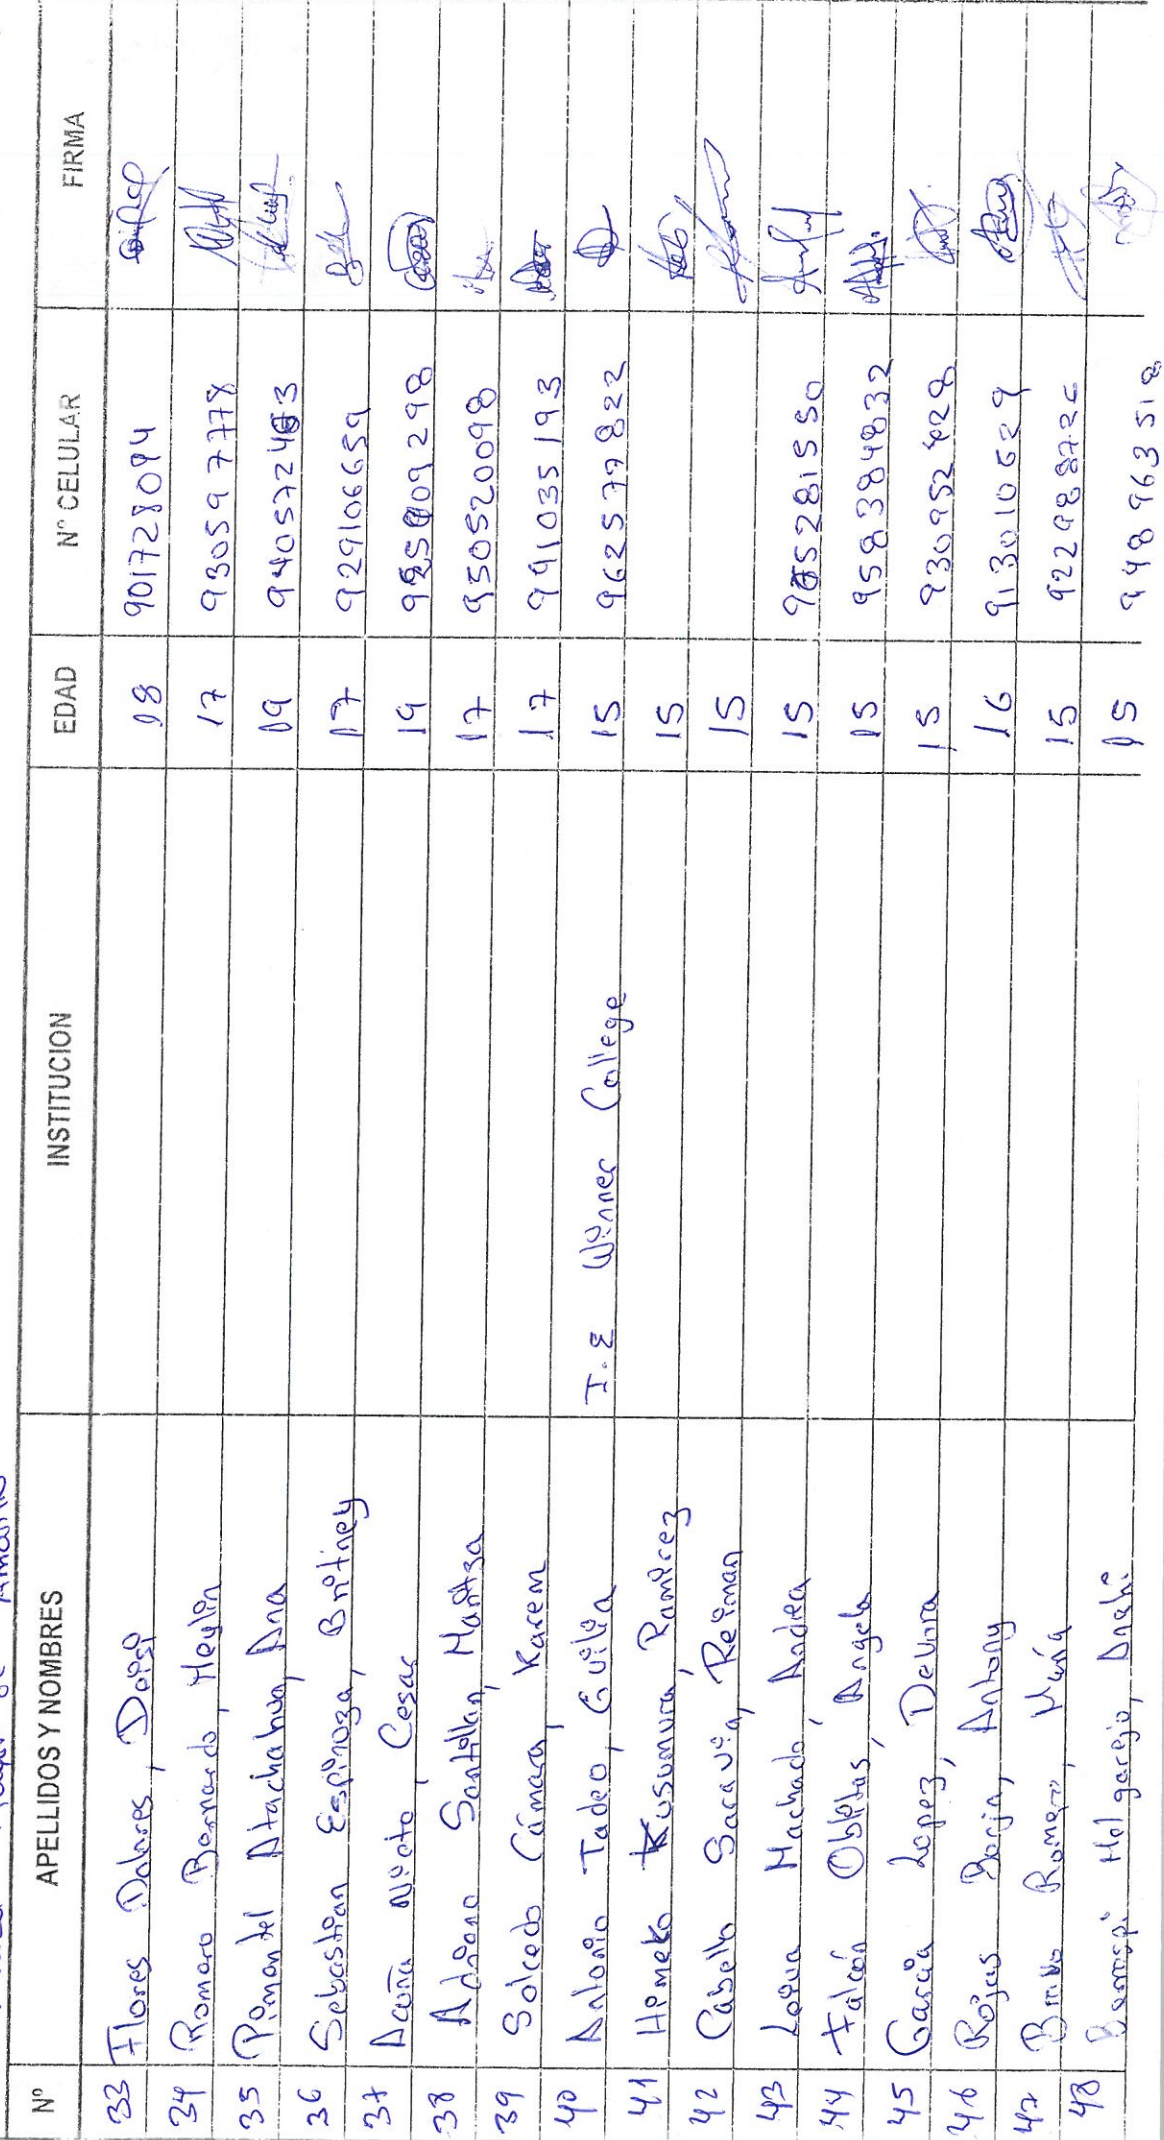 Nº APELLIDOS Y NOMBRES INSTITUCION EDAD Nº CELULAR FIRMA
33 Flores Dolores, Deisi 18 901728094
34 Romaro Bernardo, Meylin 17 930597778
35 Pimentel Atachahua, Ana 19
36 Sebastian Espinoza, Britiney 17 929106659
37 Acuña Nieto, Cesar 19
38 Adriano Santillan, Maritza 17 950520098
39 Salcedo Cámara, Karem 17 991035193
40 Antonio Tadeo, Evilia I.E Winner College 15 962579822
41 15
42 Cabello Saravia, Reiman 15
43 Leiva Machado, Andrea 15
44 Falcón Oblitas, Angela 15 958384832
45 Garcia Lopez, Debora 15
46 Rojas Borja, Antony 16 913010629
47 Romero, María 15
48 Melgarejo, Anahi 15 948963518